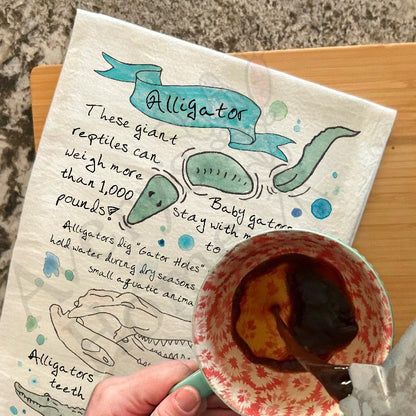 Alligator
These giant
reptiles can
weigh more
than 1,000
pounds!
Baby gators
stay with m
to
Alligators dig "Gator Holes"
hold water during dry seasons
small aquatic anima
Alligators
teeth